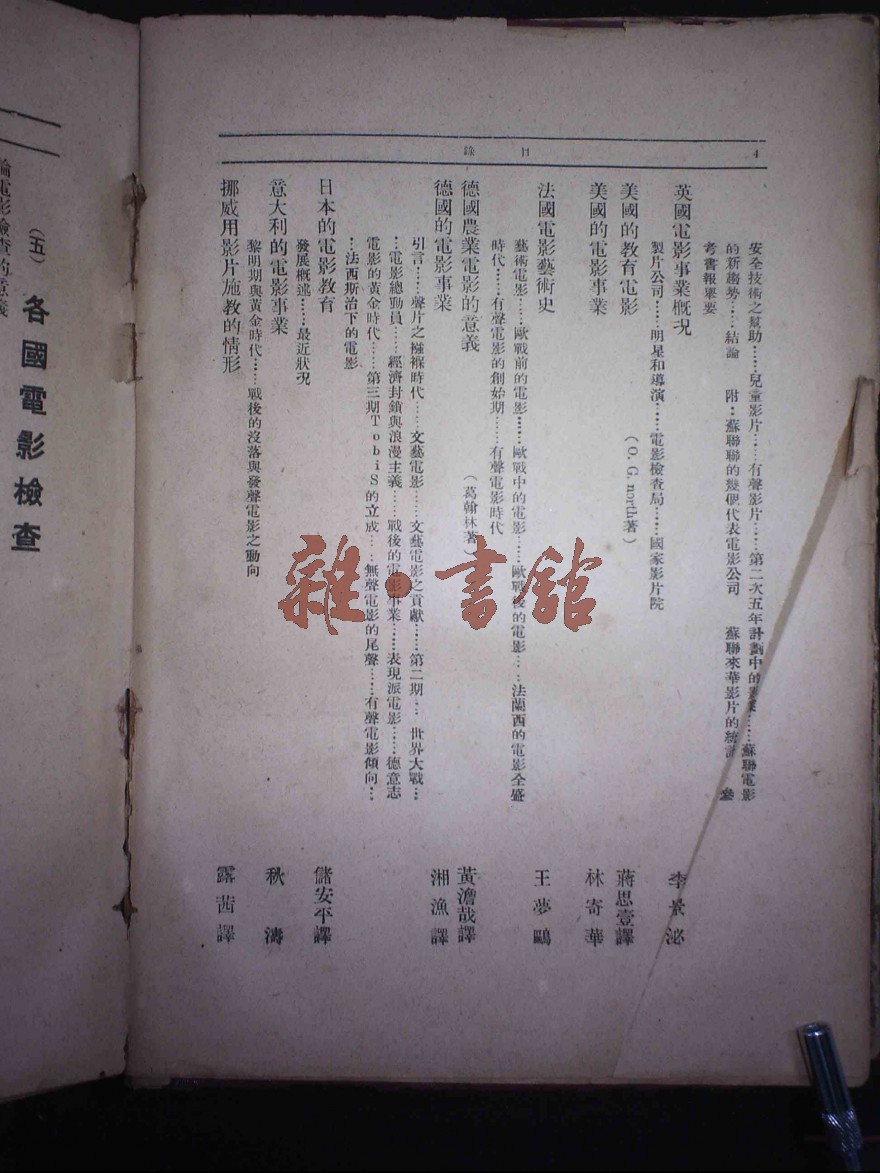 4
目錄
安全技術之幫助……兒童影片……有聲影片……第二次五年計劃中的……蘇聯電影
的新趨勢……結論 附：蘇聯聯的幾個代表電影公司 蘇聯來華影片的統計 參
考書報舉要
英國電影事業概況 李景泌
製片公司……明星和導演……電影檢查局……國家影片院
美國的教育電影 (O. G. north著) 蔣思壹譯
美國的電影事業 林寄華
法國電影藝術史 王夢鷗
藝術電影……歐戰前的電影……歐戰中的電影……歐戰後的電影……法蘭西的電影全盛
時代……有聲電影的創始期……有聲電影時代
德國農業電影的意義 (葛翰林著) 黃澹哉譯
德國的電影事業 湘漁譯
引言……聲片之襁褓時代……文藝電影……文藝電影之貢獻……第二期……世界大戰…
…電影總動員……經濟封鎖與浪漫主義……戰後的電影事業……表現派電影……德意志
電影的黃金時代……第三期TobiS的立成……無聲電影的尾聲……有聲電影傾向…
…法西斯治下的電影
日本的電影教育 儲安平譯
發展概述……最近狀況
意大利的電影事業 秋濤
黎明期與黃金時代……戰後的沒落與發聲電影之動向
挪威用影片施教的情形 露茜譯
(五) 各國電影檢查
論電影檢查的意義
雜·書館